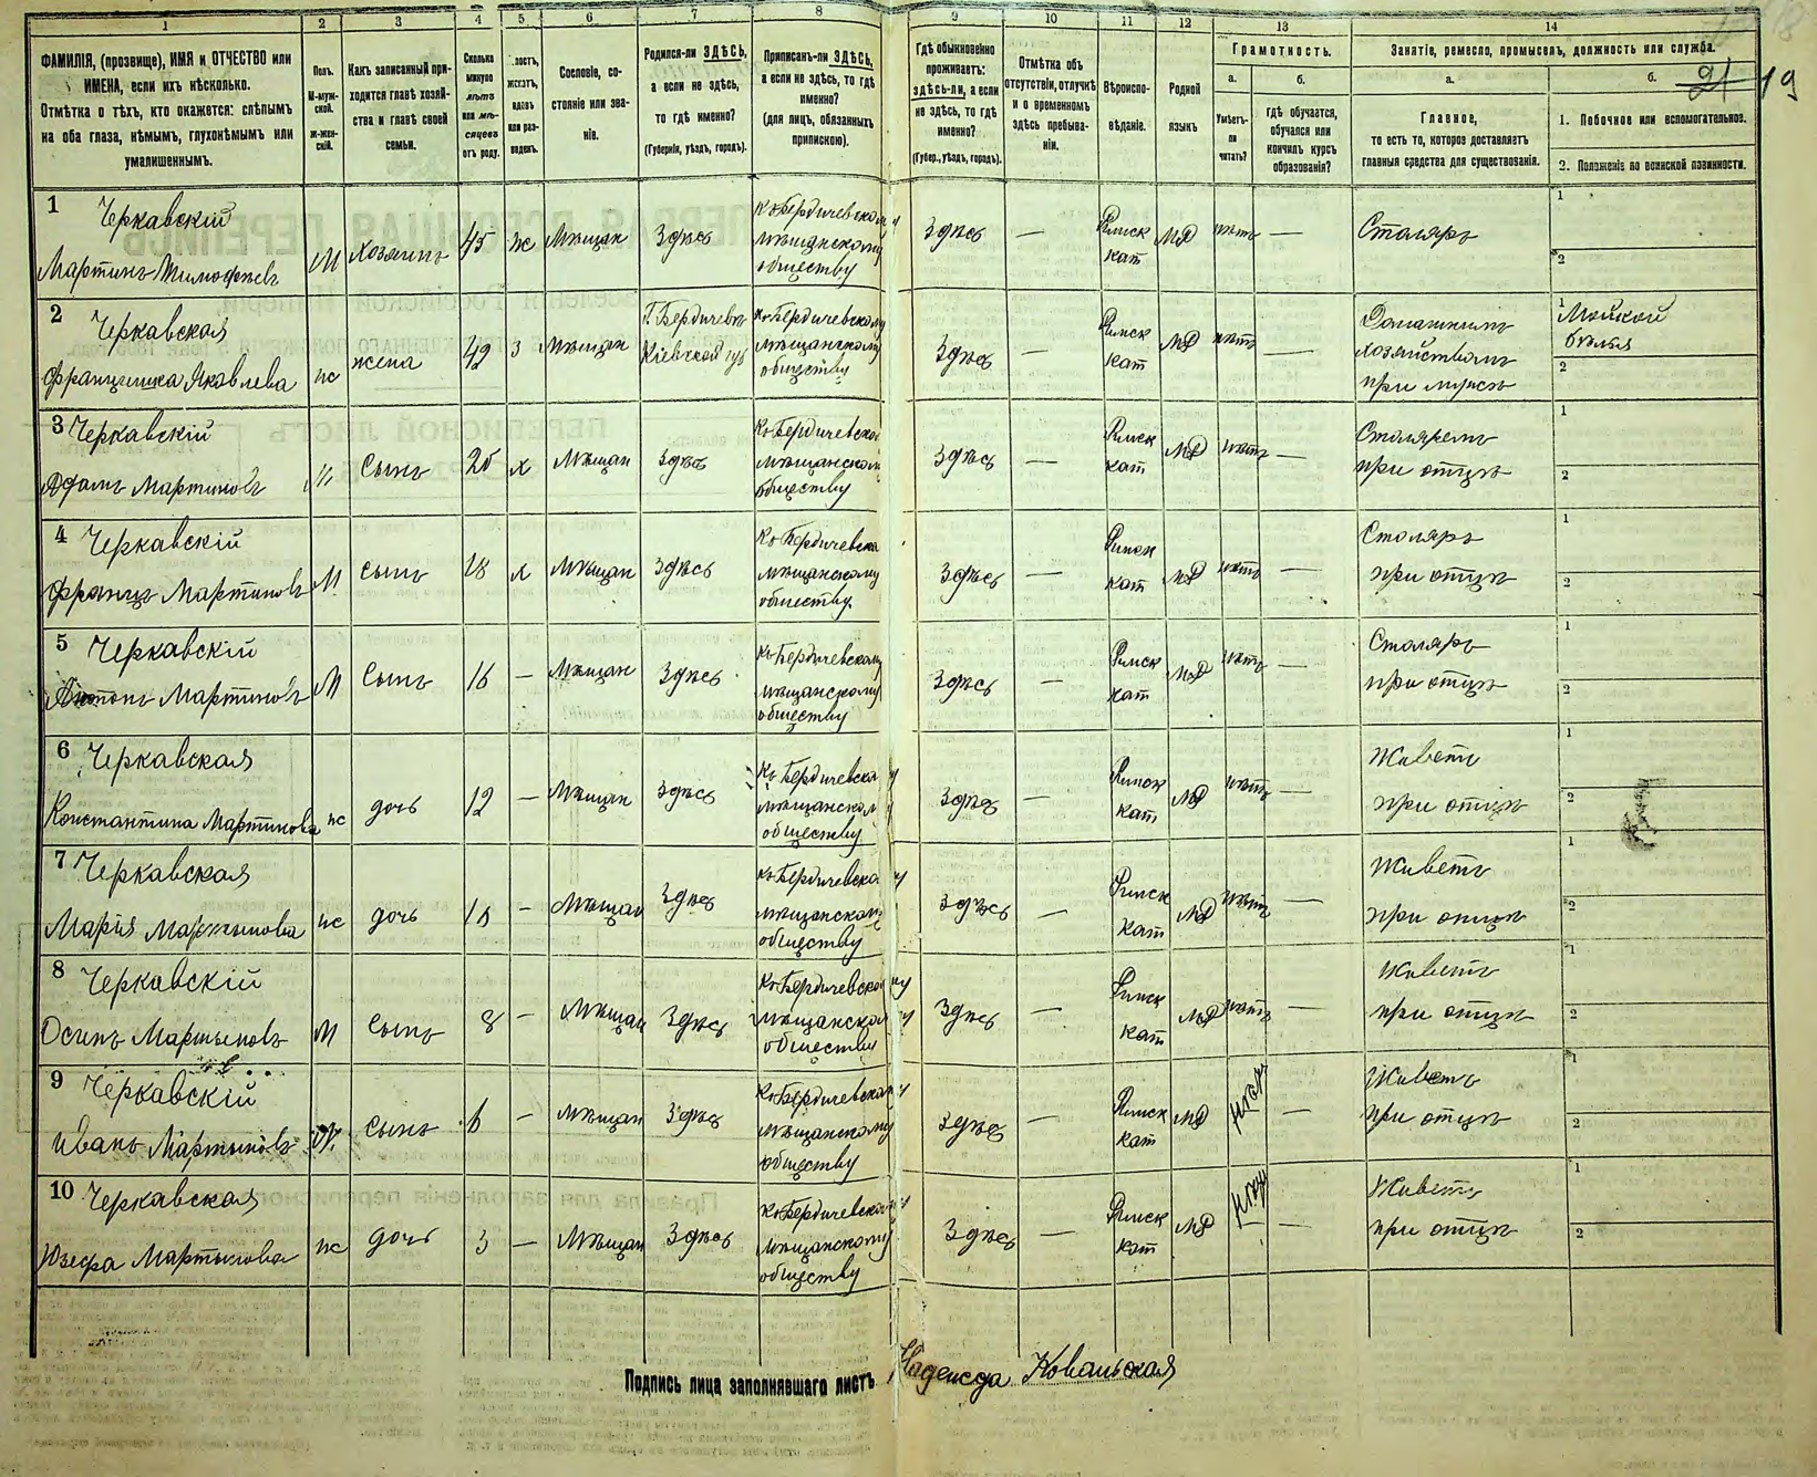 1 2 3 4 5 6 7 8 9 10 11 12 13 14
ФАМИЛІЯ, (прозвище), ИМЯ и ОТЧЕСТВО или
ИМЕНА, если ихъ нѣсколько.
Отмѣтка о тѣхъ, кто окажется: слѣпымъ
на оба глаза, нѣмымъ, глухонѣмымъ или
умалишеннымъ.
Полъ.
М-муж-
ской.
ж-жен-
скій.
Какъ записанный при-
ходится главѣ хозяй-
ства и главѣ своей
семьи.
Сколько
минуло
лѣтъ
или мѣ-
сяцевъ
отъ роду.
лостъ,
женатъ,
вдовъ
или раз-
веденъ.
Сословіе, со-
стояніе или зва-
ніе.
Родился-ли ЗДѢСЬ,
а если не здѣсь,
то гдѣ именно?
(Губернія, уѣздъ, городъ).
Приписанъ-ли ЗДѢСЬ,
а если не здѣсь, то гдѣ
именно?
(для лицъ, обязанныхъ
припискою).
Гдѣ обыкновенно
проживаетъ:
здѣсь-ли, а если
не здѣсь, то гдѣ
именно?
(Губер., уѣздъ, городъ).
Отмѣтка объ
отсутствіи, отлучкѣ
и о временномъ
здѣсь пребыва-
ніи.
Вѣроиспо-
вѣданіе.
Родной
языкъ
Грамотность.
а.
Умѣетъ-
ли
читать?
б.
гдѣ обучается,
обучался или
кончилъ курсъ
образованія?
Занятіе, ремесло, промыселъ, должность или служба.
а.
Главное,
то есть то, которое доставляетъ
главныя средства для существованія.
б.
21 19
1. Побочное или вспомогательное.
2. Положеніе по воинской повинности.
1 Черкавскій
Мартинъ Тимофѣевъ
М Хозяинъ 45 ж Мѣщан Здѣсь
Къ Бердичевскому
мѣщанскому
обществу
Здѣсь —
Римск
кат
нѣтъ —
Столяръ
1
2
2 Черкавская
Францишка Яковлева
ж жена 42 з Мѣщан
Г. Бердичевъ
Кіевской губ
Къ Бердичевскому
мѣщанскому
обществу
Здѣсь —
Римск
кат
нѣтъ —
Домашнимъ
хозяйствомъ
при мужѣ
1 Мойкой
бѣлья
2
3 Черкавскій
Адамъ Мартиновъ
М Сынъ 20 х Мѣщан Здѣсь
Къ Бердичевско
мѣщанском
обществу
Здѣсь —
Римск
кат
нѣтъ —
Столяремъ
при отцѣ
1
2
4 Черкавскій
Францъ Мартиновъ
М. Сынъ 18 х Мѣщан Здѣсь
Къ Бердичевско
мѣщанскому
обществу
Здѣсь —
Римск
кат
нѣтъ —
Столяръ
при отцѣ
1
2
5 Черкавскій
Антонъ Мартиновъ
М Сынъ 16 — Мѣщан Здѣсь
Къ Бердичевскому
мѣщанскому
обществу
Здѣсь —
Римск
кат
нѣтъ —
Столяръ
при отцѣ
1
2
6 Черкавская
Константина Мартинова
ж дочь 12 — Мѣщан Здѣсь
Къ Бердичевском
мѣщанском
обществу
Здѣсь —
Римск
кат
нѣтъ —
Живетъ
при отцѣ
1
2
7 Черкавская
Марія Мартынова
ж дочь — Мѣщан Здѣсь
Къ Бердичевско
мѣщанском
обществу
Здѣсь —
Римск
кат
нѣтъ —
Живетъ
при отцѣ
1
2
8 Черкавскій
Осипъ Мартыновъ
М Сынъ 8 — Мѣщан Здѣсь
Къ Бердичевскому
мѣщанскому
обществу
Здѣсь —
Римск
кат
нѣтъ —
Живетъ
при отцѣ
1
2
9 Черкавскій
Иванъ Мартыновъ
М. Сынъ 6 — Мѣщан Здѣсь
Къ Бердичевскому
мѣщанскому
обществу
Здѣсь —
Римск
кат
—
Живетъ
при отцѣ
1
2
10 Черкавская
Юзефа Мартынова
ж дочь 3 — Мѣщан Здѣсь
Къ Бердичевскому
мѣщанскому
обществу
Здѣсь —
Римск
кат
—
Живетъ
при отцѣ
1
2
Подпись лица заполнявшаго листъ Надежда Ковальская